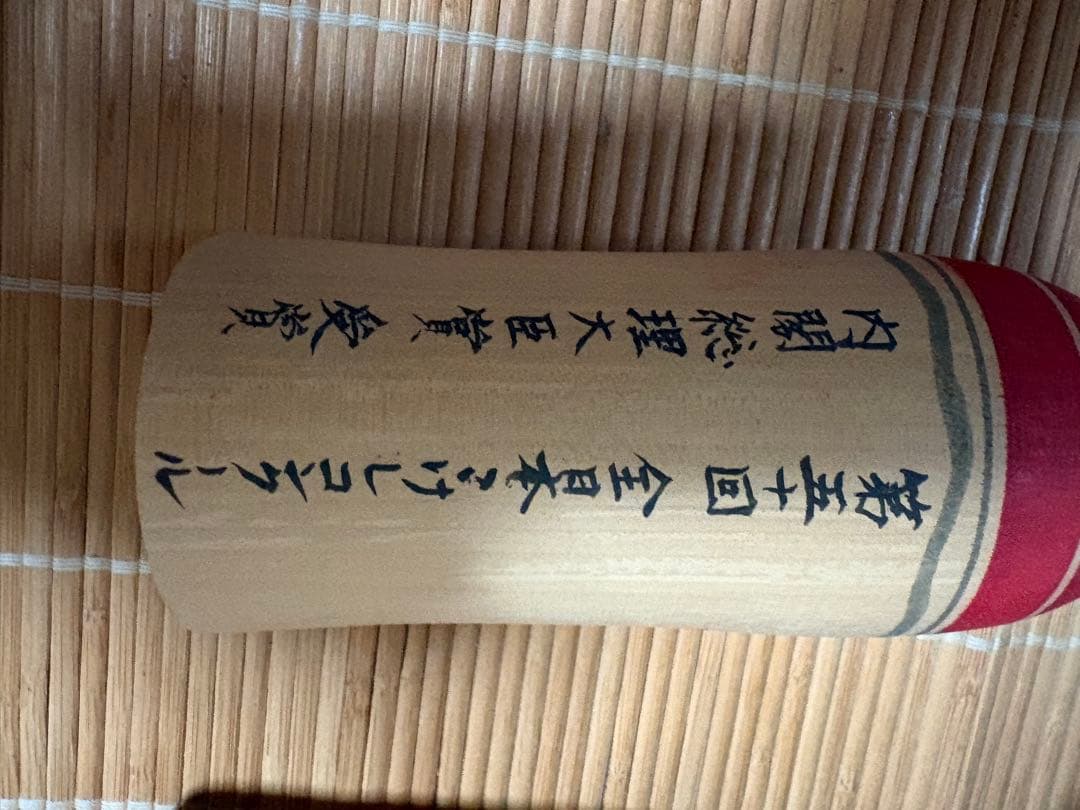 第五十回 全日本こけしコンクール
内閣総理大臣賞 受賞